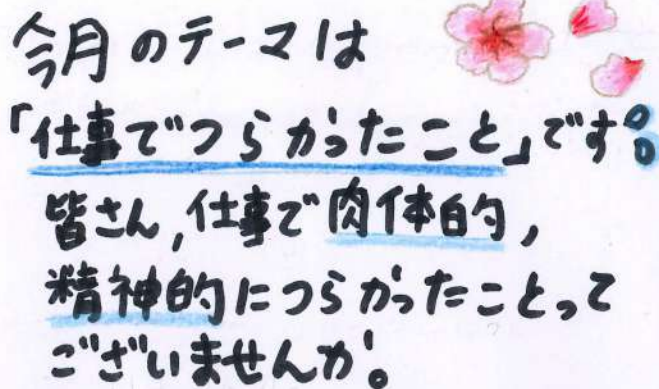 今月のテーマは
「仕事でつらかったこと」です。
皆さん,仕事で肉体的,
精神的につらかったことって
ございませんか。